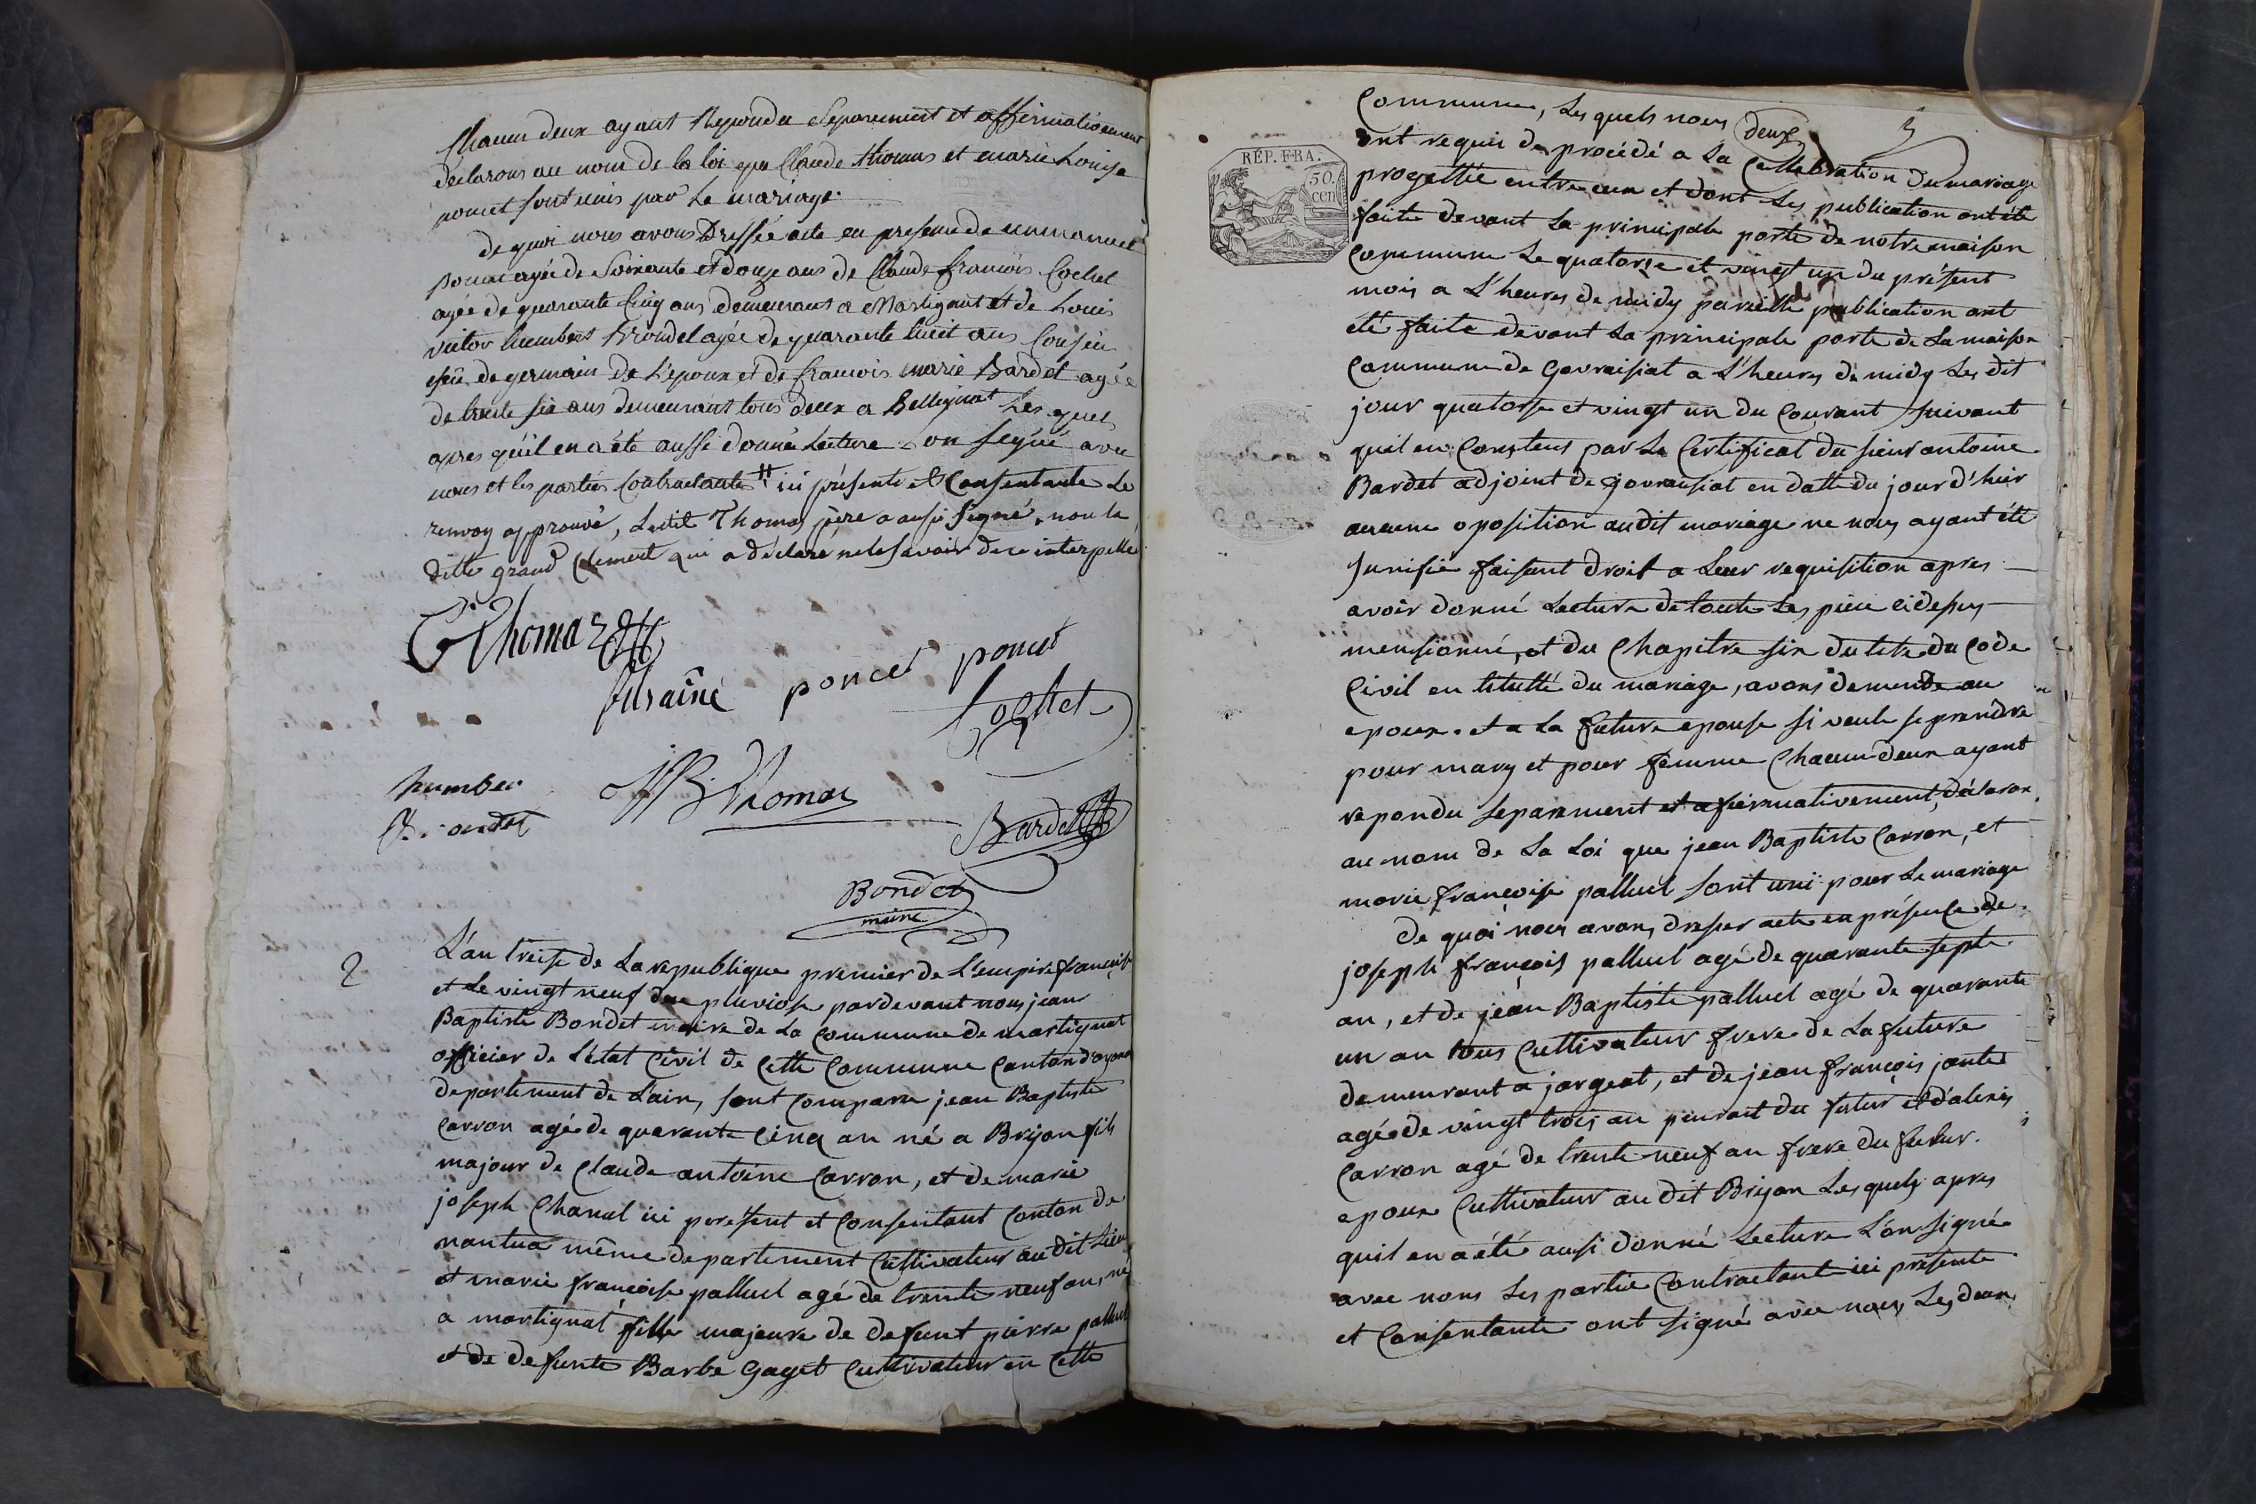 Chacun deux ayant Repondu Separement et affirmativement
déclarons au nom de la loi que Claude thomas et marie Louise
poncet sont unis par le mariage.
de quoi nous avons Dressée acte en presence de emmanuel
poncet agée de Soixante et douze ans de Claude françois Cochet
agée de quarante Cinq ans demeurans a Martignat et de Louis
victor humbert Brondel agée de quarante huit ans Cousin
de germain de L'epoux et de francois marie Bardet agée
de trente six ans demeurant tous deux a Bellignat Les quels
apres qu'il en a été aussi donné Lecture on signé avec
nous et les parties Contractante # ici présente et Consentante Le
renvoy approuvé, Ledit Thomas père a aussi signé, non la
ditte grand Clement qui a déclaré ne le savoir de ce interpellé
C Thomas
poncet poncet
Cochet
humber
JB Thomas
Bardet
Bondet
maire
2
L'an treise de La republique premier de L'empire françoise
et Le vingt neuf du pluviose pardevant nous jean
Baptiste Bondet maire de La Commune de martignat
officier de L'état Civil de Cette Commune Canton d'oyonna
departement de L'ain, sont Comparu jean Baptiste
Carron agé de quarante Cinq an né a Brijon fils
majour de Claude antoine Carron, et de marie
joseph Chanal ici present et Consentant Conton de
nantua même departement Cultivateur au dit Lieu
et marie francoise palluel agé de trente neuf an, né
a martignat fille majeure de defunt pierre palluel
et de defunte Barbe Gaget Cultivateur en Cette
deux
3
RÉP. FRA.
50.
cen.
Commune, Les quels nous
ont requis de procédé a La Cellebration du mariage
progettée entre eux et dont Les publication ont été
faite devant La principale porte de notre maison
Commune Le quatorze et vingt un du présent
mois a L'heures de midy pareille publication ont
été faite devant La principale porte de La maison
Commune de Gevraisiat a L'heures de midy Les dit
jour quatorse et vingt un du Courant suivant
quil en Constens par Le Certificat du sieur antoine
Bardet adjoint de Govraisiat en datte du jour d'hier
aucune oposition audit mariage ne nous ayant été
Junifié faisent Droit a Leur requisition apres
avoir donné Lecture de toute Les piece cidesus
mensionné, et du Chapitre six du titre du Code
Civil en titullé du mariage, avons demende au
epoux. et a La future epouse si veule se prendre
pour mary et pour femme Chacun deux ayant
repondu separement et afirmativement, déclaron
au nom de La Loi que jean Baptiste Carron, et
marie françoise palluel sont uni pour Le mariage
De quoi nous avons dreser acte en présence de
joseph françois palluel agé de quarante septe
an, et de jean Baptiste palluel agé de quarante
un an tous Cultivateur frere de La future
demeurant a jargeat, et de jean françois jante
agée de vingt trois an parent du futur et d'alexis
Carron agé de trente neuf an frere du futur.
epoux Cultivateur au dit Brijon Lesquels apres
quil en a été ausi donné Lecture L'on signé
avec nous Les partie Contractante ici présente
et Consentante ont signé avec nous, Les deux